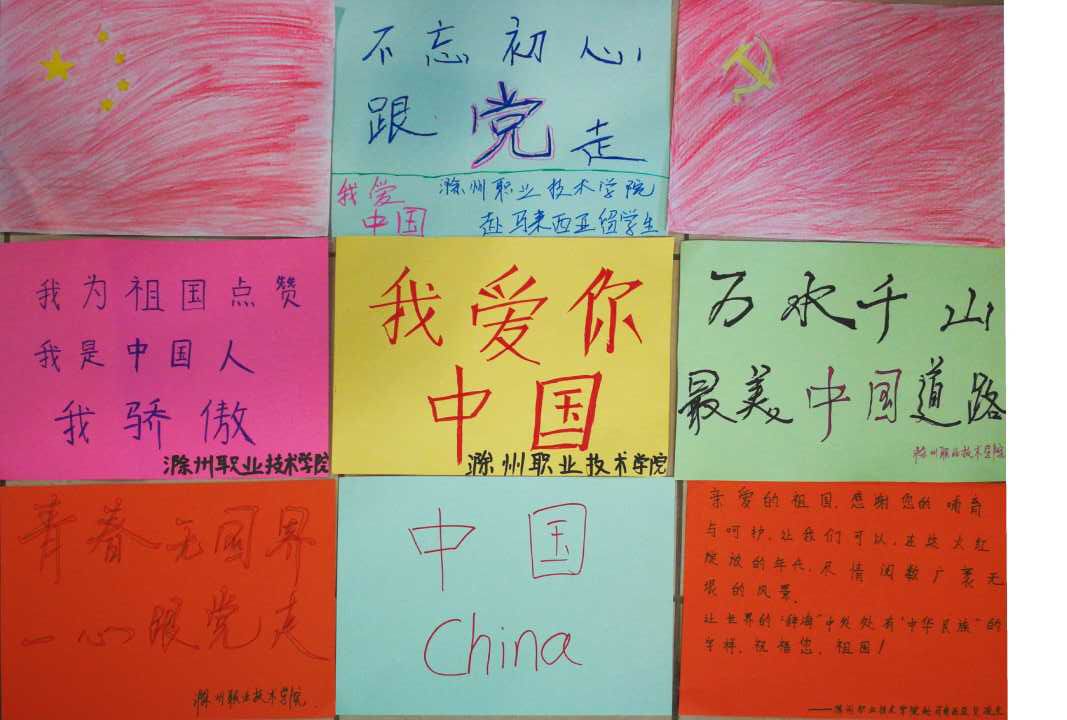 不忘初心
跟党走
我爱
中国
滁州职业技术学院
赴马来西亚留学生
我为祖国点赞
我是中国人
我骄傲
滁州职业技术学院
我爱你
中国
滁州职业技术学院
万水千山
最美中国道路
滁州职业技术学院
青春无国界
一心跟党走
滁州职业技术学院
中国
China
亲爱的祖国,感谢您的哺育
与呵护,让我们可以,在这火红
绽放的年代,尽情阅数广袤无
垠的风景。
让世界的“辞海”中处处有“中华民族”的
字样。祝福您,祖国!
——滁州职业技术学院赴马来西亚